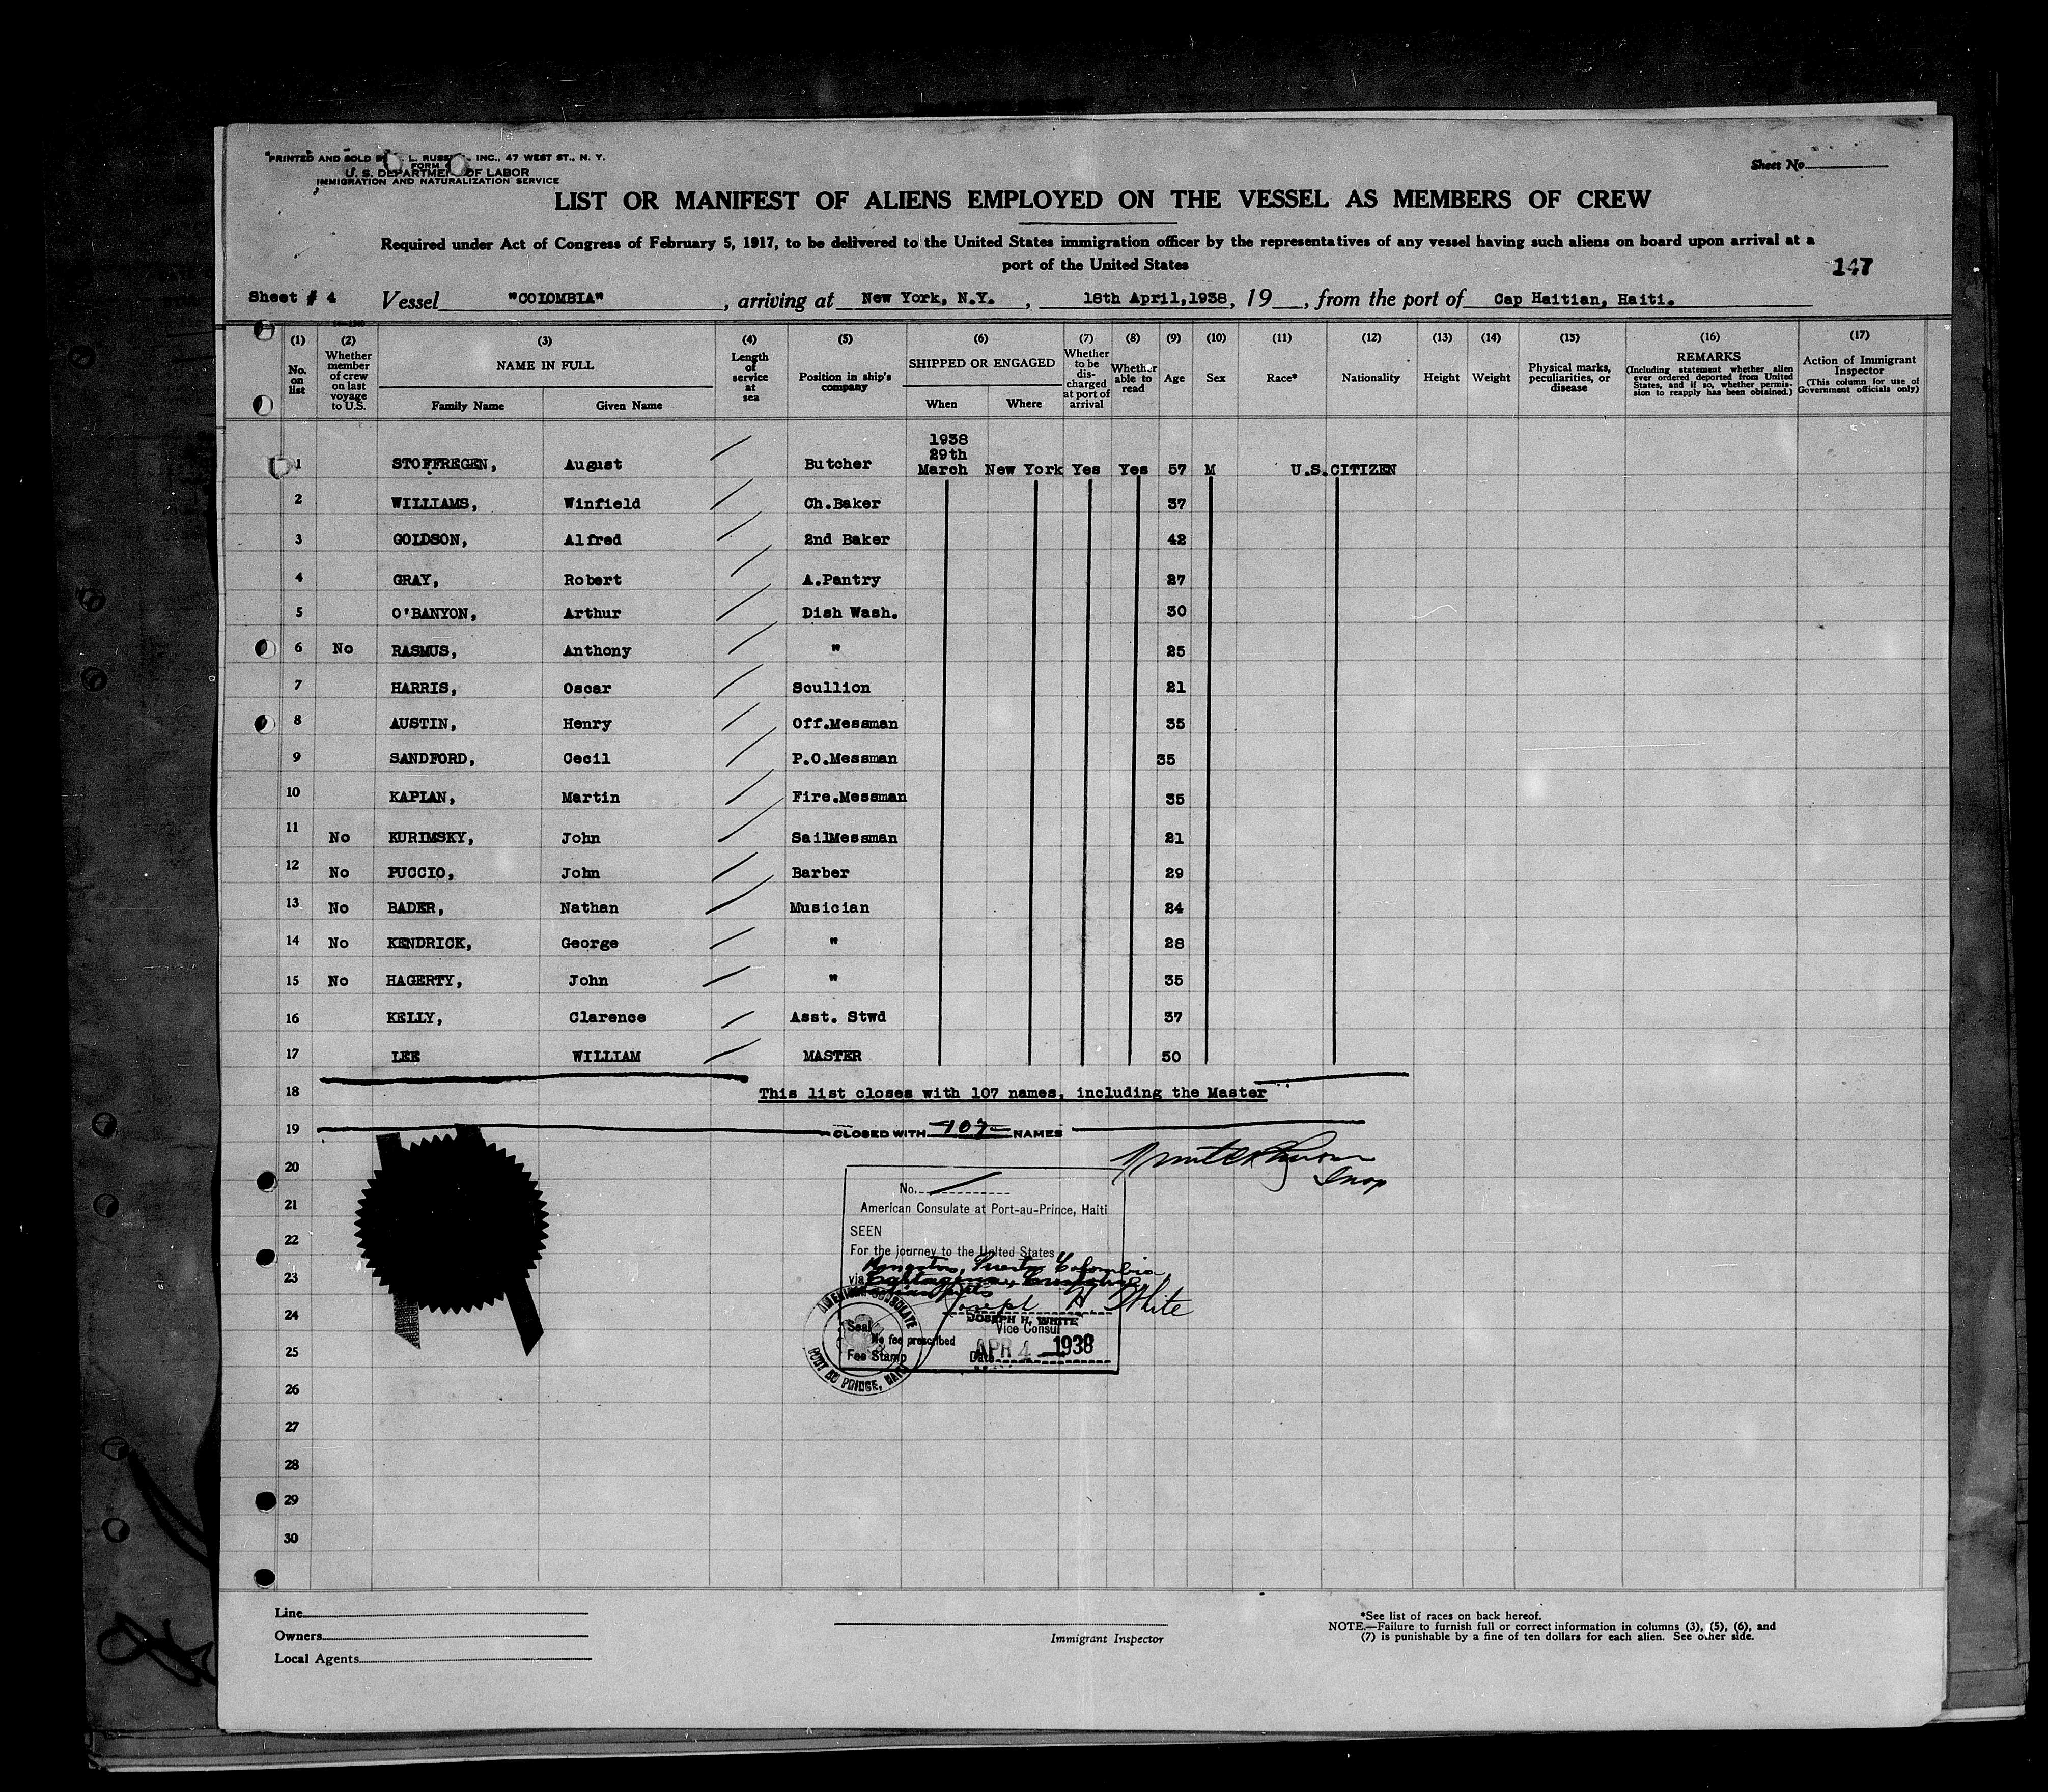 PRINTED AND SOLD B L. RUSS , INC., 47 WEST ST., N. Y.
FORM
U. S. DEPARTMEN OF LABOR
IMMIGRATION AND NATURALIZATION SERVICE
Sheet No
LIST OR MANIFEST OF ALIENS EMPLOYED ON THE VESSEL AS MEMBERS OF CREW
Required under Act of Congress of February 5, 1917, to be delivered to the United States immigration officer by the representatives of any vessel having such aliens on board upon arrival at a
port of the United States
147
Sheet # 4 Vessel "COLOMBIA", arriving at New York, N.Y., 18th April,1938, 19 , from the port of Cap Haitian, Haiti.
(1) No. on list (2) Whether member of crew on last voyage to U.S. (3) NAME IN FULL Family Name Given Name (4) Length of service at sea (5) Position in ship's company (6) SHIPPED OR ENGAGED When Where (7) Whether to be discharged at port of arrival (8) Whether able to read (9) Age (10) Sex (11) Race* (12) Nationality (13) Height (14) Weight (15) Physical marks, peculiarities, or disease (16) REMARKS (Including statement whether alien ever ordered deported from United States, and if so, whether permission to reapply has been obtained.) (17) Action of Immigrant Inspector (This column for use of Government officials only)
1 STOFFREGEN, August Butcher 1938 29th March New York Yes Yes 57 M U.S.CITIZEN
2 WILLIAMS, Winfield Ch.Baker 37
3 GOLDSON, Alfred 2nd Baker 42
4 GRAY, Robert A.Pantry 27
5 O'BANYON, Arthur Dish Wash. 30
6 No RASMUS, Anthony " 25
7 HARRIS, Oscar Scullion 21
8 AUSTIN, Henry Off.Messman 35
9 SANDFORD, Cecil P.O.Messman 35
10 KAPLAN, Martin Fire.Messman 35
11 No KURIMSKY, John SailMessman 21
12 No PUCCIO, John Barber 29
13 No BADER, Nathan Musician 24
14 No KENDRICK, George " 28
15 No HAGERTY, John " 35
16 KELLY, Clarence Asst. Stwd 37
17 LEE WILLIAM MASTER 50
18 This list closes with 107 names, including the Master
19 CLOSED WITH 107 NAMES
20
Insp
No.
21 American Consulate at Port-au-Prince, Haiti
SEEN
22
For the journey to the United States
Kingston, Puerto Colombia,
23 via Cartagena,
24 Joseph H. White
JOSEPH H. WHITE
Vice Consul
AMERICAN CONSULATE
PORT AU PRINCE, HAITI
Seal
No fee prescribed
25 Fee Stamp Date APR 4 1938
26
27
28
29
30
Line
Owners
Local Agents
Immigrant Inspector
*See list of races on back hereof.
NOTE.—Failure to furnish full or correct information in columns (3), (5), (6), and
(7) is punishable by a fine of ten dollars for each alien. See other side.